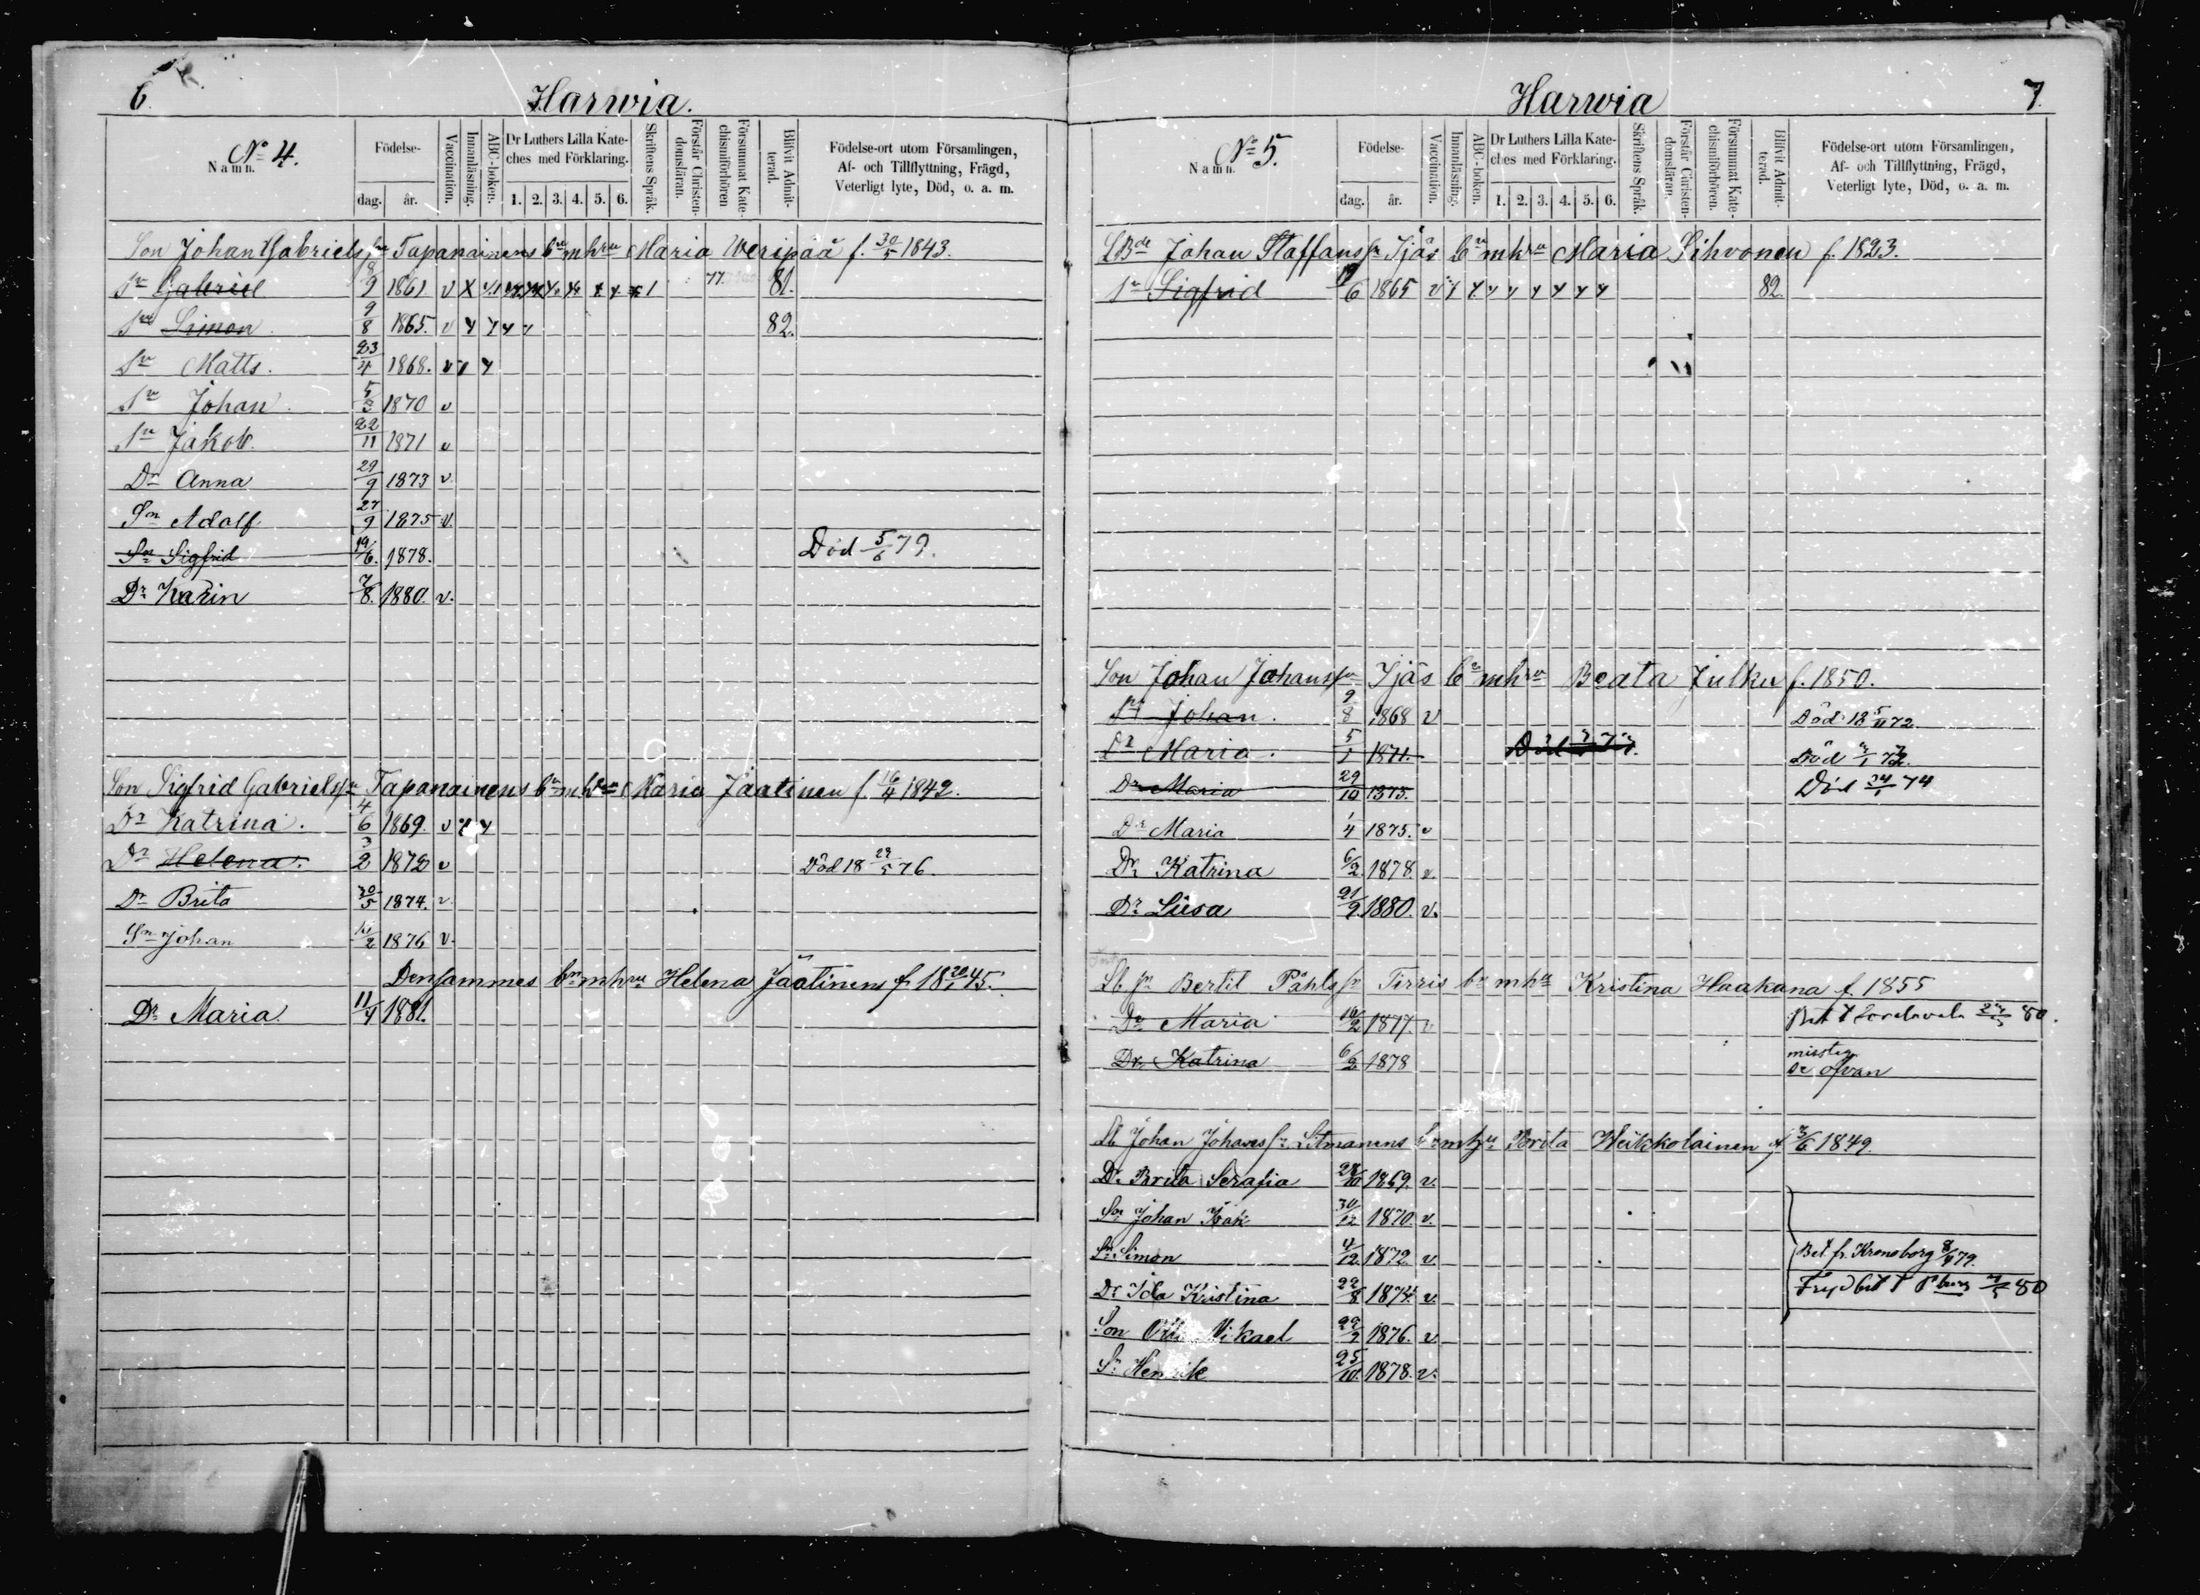 6.
Harwia.
No 4.
Namn.
Födelse-
dag.
år.
Vaccination.
Innanläsning.
ABC-boken.
Dr Luthers Lilla Kate-
ches med Förklaring.
1. 2. 3. 4. 5. 6.
Skriftens Språk.
Förstår Christen-
domsläran.
Försummat Kate-
chismiförhören
Blifvit Admit-
terad.
Födelse-ort utom Församlingen,
Af- och Tillflyttning, Frägd,
Veterligt lyte, Död, o. a. m.
Son Johan Gabrielsson Tapanainens bn m hru Maria Weripää f. 30/5 1843.
Sn Gabriel 8/9 1861 v x 77. 81.
Sn Simon 9/8 1865. v 82.
Sn Matts. 23/4 1868. v
Sn Johan 5/3 1870 v
Sn Jakob. 22/11 1871 v
Dr Anna 29/9 1873 v
Son Adolf 27/9 1875 v.
Sn Sigfrid 19/6. 1878. Död 5/6 79.
Dr Karin 7/8. 1880. v.
Son Sigfrid Gabrielssn Tapanainens bn m hru Maria Jaatinen f. 16/4 1842.
Dr Katrina. 4/6 1869. v
Dr Helena. 3/2 1872 v Död 18 29/5 76.
Dr Brita 30/5 1874. v
Sn Johan /2 1876 v.
Densammes bn m hru Helena Jäätinens f. 18 20/1 45.
Dr Maria. 11/4 1881.
Harwia
7.
No 5.
Namn.
Födelse-
dag.
år.
Vaccination.
Innanläsning.
ABC-boken.
Dr Luthers Lilla Kate-
ches med Förklaring.
1. 2. 3. 4. 5. 6.
Skriftens Språk.
Förstår Christen-
domsläran.
Försummat Kate-
chismiförhören.
Blifvit Admit-
terad.
Födelse-ort utom Församlingen,
Af- och Tillflyttning, Frägd,
Veterligt lyte, Död, o. a. m.
Johan Staffanssn Ijäs bn m hru Maria Sihvonen f. 1823.
Sn Sigfrid 19/6 1865 v 82.
Son Johan Johanssn Ijäs bn m hru Beata Julku f. 1850.
Sn Johan. 9/8 1868 v Död 18 5/11 72.
Dr Maria. 5/1 1871. Död Död
Dr Maria 29/10 1873. Död 24/1 74
Dr Maria 1/4 1875. v
Dr Katrina 6/2. 1878. v.
Dr Liisa 21/2. 1880. v.
Sb Sn Bertil Påhlssn Tirris bn m hru Kristina Haakana f. 1855
Dr Maria 16/2 1877 v Bet t Sordavala 80.
Dr Katrina 6/2 1878 misstag
se ofvan
Sb Johan Johanssn bn m hru Brita Heikkolainen f /6 1849.
Dr Brita Serafia 28/10 1869. v.
Sn Johan Isak 30/12 1870. v.
Sn Simon 4/12 1872. v. Bet. fr. Kronoborg 8/4 79.
Dr Ida Kristina 22/8 1874. v. 80
Son Mikael 22/2 1876. v
Sn Henrik 25/10. 1878. v.